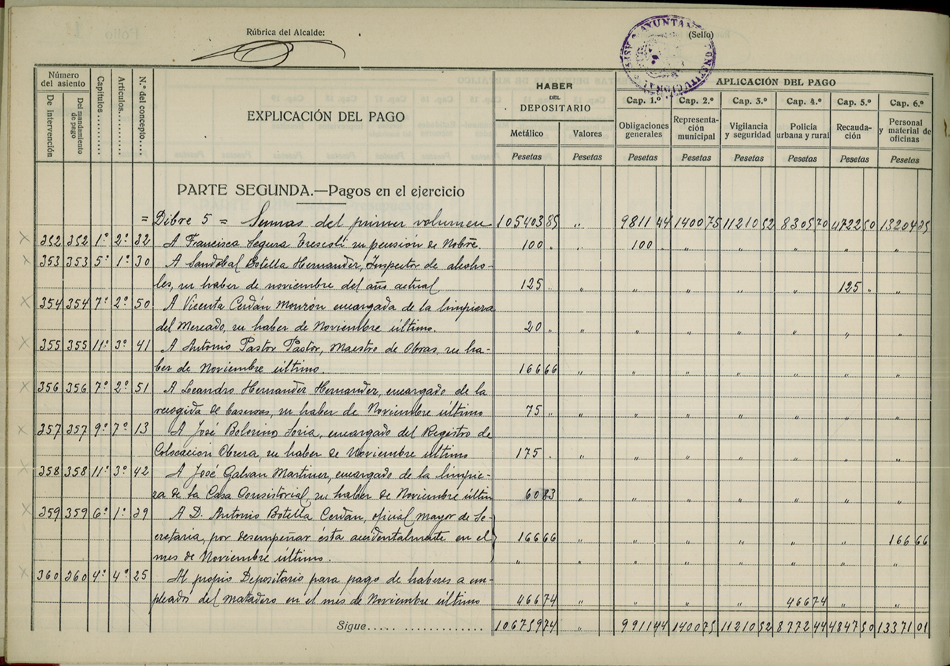 Rúbrica del Alcalde:
(Sello)
AYUNTA CONSTITUCIONAL
Número del asiento
De Intervención
Del mandamiento de pago
Capítulos
Artículos
N.º del concepto
EXPLICACIÓN DEL PAGO
HABER DEL DEPOSITARIO
Metálico Valores
Pesetas Pesetas
APLICACIÓN DEL PAGO
Cap. 1.º Cap. 2.º Cap. 3.º Cap. 4.º Cap. 5.º Cap. 6.º
Obligaciones generales
Representación municipal
Vigilancia y seguridad
Policía urbana y rural
Recaudación
Personal y material de oficinas
Pesetas Pesetas Pesetas Pesetas Pesetas Pesetas
PARTE SEGUNDA.—Pagos en el ejercicio
= Dibre 5 = Sumas del primer volumen 105403 85 " 9811 44 1400 75 11210 52 8305 70 4722 50 13204 35
352 352 1º 2º 32 A Francisca Segura su pension de Nobre. 100 " " 100 " " " " " "
353 353 5º 1º 30 A Sandobal Botella Hernander, Inspector de alcoho-
les, su haber de noviembre del año actual 125 " " " " " " 125 " "
354 354 7º 2º 50 A Vicenta Cerdán Monzón encargada de la limpieza
del Mercado, su haber de Noviembre último. 20 " " " " " " " "
355 355 11º 3º 41 A Antonio Pastor Pastor, Maestro de Obras, su ha-
ber de Noviembre último. 166 66 " " " " " " "
356 356 7º 2º 51 A Leandro Hernander Hernander, encargado de la
recogida de basuras, su haber de Noviembre último 75 " " " " " " " "
357 357 9º 7º 13 A José Bolorino Soria, encargado del Registro de
Colocacion Obrera, su haber de Noviembre último 175 " " " " " " " "
358 358 11º 3º 42 A José Galvan Martiner, encargado de la limpie-
za de la Casa Consistorial, su haber de Noviembre últim 60 83 " " " " " " "
359 359 6º 1º 29 A D. Antonio Botella Cerdán, oficial mayor de Se-
cretaría, por desempeñar ésta accidentalmente en el 166 66 " " " " " " 166 66
mes de Noviembre último.
360 360 4º 4º 25 Al propio Depositario para pago de haberes a em-
pleados del matadero en el mes de Noviembre último 466 74 " " " " 466 74 " "
Sigue 106759 74 " 9911 44 1400 75 11210 52 8772 44 4847 50 13371 01